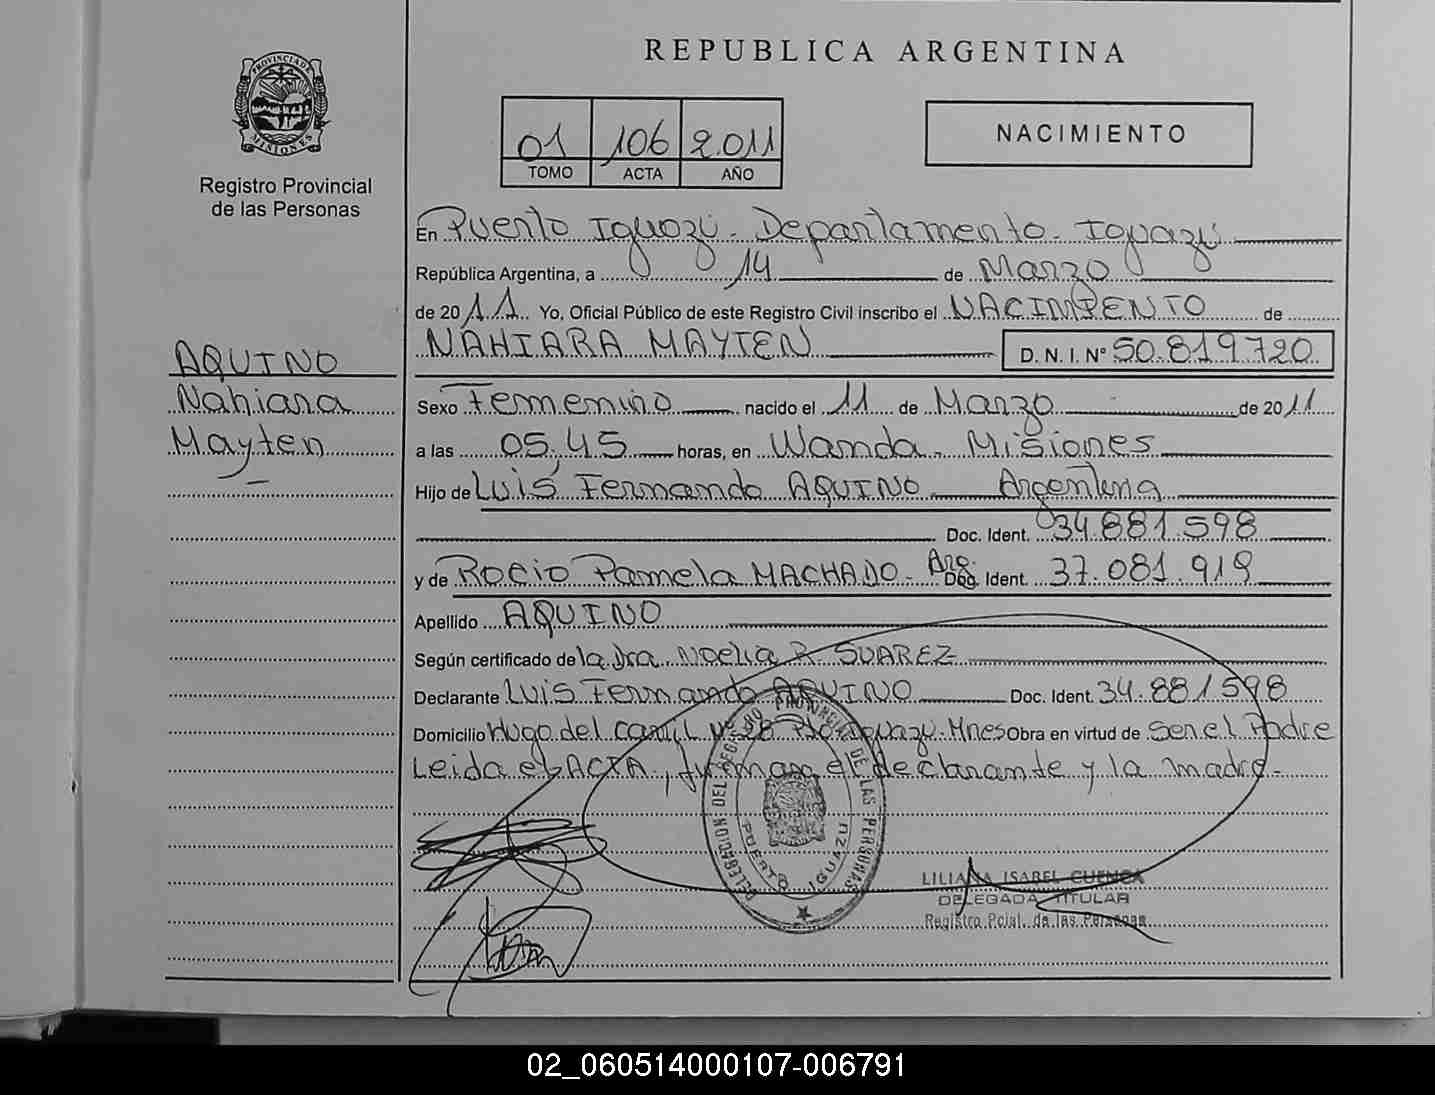 REPUBLICA ARGENTINA
PROVINCIA DE MISIONES
Registro Provincial
de las Personas
01 106 2.011
TOMO ACTA AÑO
NACIMIENTO
En Puerto Iguazú. Departamento. Iguazú
República Argentina, a 14 de Marzo
de 2011 Yo, Oficial Público de este Registro Civil inscribo el NACIMIENTO de
NAHIARA MAYTEN D. N. I. Nº 50.819.720
AQUINO
Nahiara
Mayten
Sexo Femenino nacido el 11 de Marzo de 2011
a las 05,45 horas, en Wanda. Misiones
Hijo de Luis Fernando AQUINO Argentina
Doc. Ident. 34.881.598
y de Rocio Pamela MACHADO. Arg. Doc. Ident. 37.081.919
Apellido AQUINO
Según certificado de la Dra. Noelia R. SUAREZ
Declarante Luis Fernando AQUINO Doc. Ident. 34.881598
Domicilio Hugo del carril Nº 28 Pto Iguazú. Mnes Obra en virtud de Ser el Padre
Leida el ACTA, firman el declarante y la madre.
DELEGACION DEL REGISTRO PROVINCIAL DE LAS PERSONAS
PUERTO IGUAZU
LILIANA ISABEL CUENCA
DELEGADA TITULAR
Registro Pcial. de las Personas
02_060514000107-006791